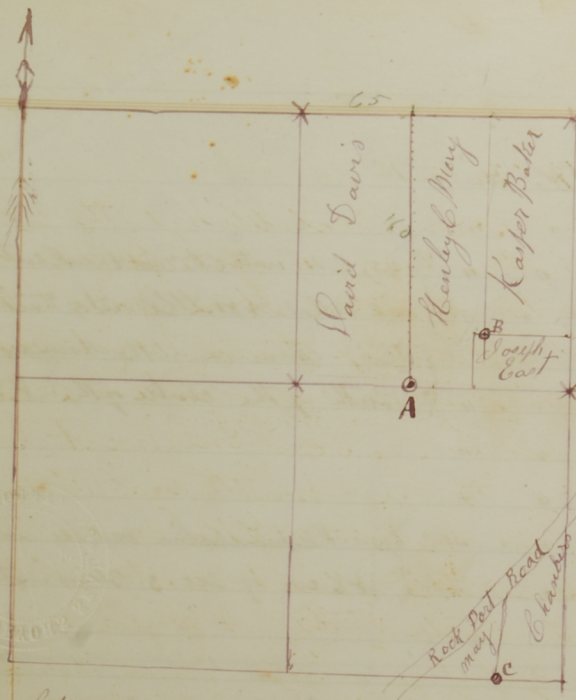 65
David Davis
Henley C
Kasper Baker
B
Joseph
East
A
Rock Port Road
may
Chambers
C